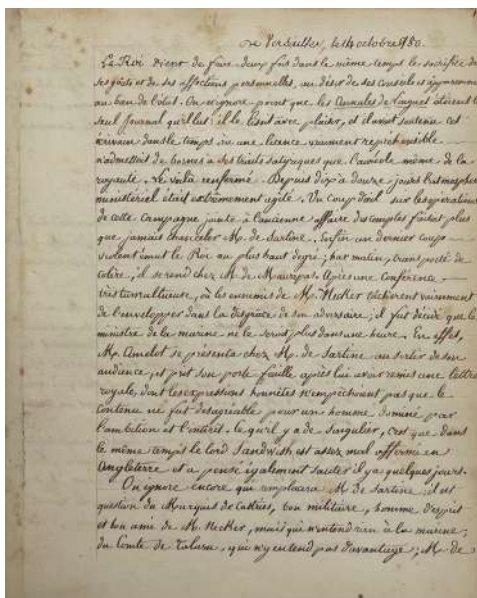 De Versailles, le 14 octobre 1780.
Le Roi vient de faire deux fois dans le même temps le sacrifice de
ses goûts et de ses affections personnelles, au désir de ses conseils et apparemment
au bien de l'état. On n'ignore point que les Annales de Linguet étoient le
seul Journal qu'il lut: il le lisait avec plaisir, et il avait soutenu cet
écrivain dans le temps où une licence vraiment repréhensible
n'admettoit de bornes à ses traits satyriques que l'asile même de la
royauté. Le voilà renfermé. Depuis dix à douze jours l'atmosphère
ministériel était extrêmement agité. Un coup d'œil sur les opérations
de cette Campagne jointe à l'ancienne affaire des comptes faisoit plus
que jamais chanceler M. de Sartine. Enfin un dernier coup
violent émut le Roi au plus haut degré; hier matin, transporté de
colère, il se rend chez M. de Maurepas. Après une Conférence
très tumultueuse, où les ennemis de M. Necker tachèrent vainement
de l'envelopper dans la disgrace de son adversaire; il fut décidé que le
ministre de la marine ne le seroit plus dans une heure. En effet,
M. Amelot se présenta chez M. de Sartine au sortir de son
audience, et prit son porte feuille après lui avoir remis une lettre
royale, dont les expressions honnêtes n'empêchoient pas que le
contenu ne fut désagréable pour un homme dominé par
l'ambition et l'intérêt. Ce qu'il y a de singulier, c'est que dans
le même temps le lord Sandwish est assez mal affermi en
Angleterre et a pensé également sauter il y a quelques jours.
On ignore encore qui remplacera M. de Sartine: il est
question du Marquis de Castries, bon militaire, homme d'esprit
et bon ami de M. Necker, mais qui n'entend rien à la marine;
du Comte de Talaru, qui n'y entend pas davantage; M. de